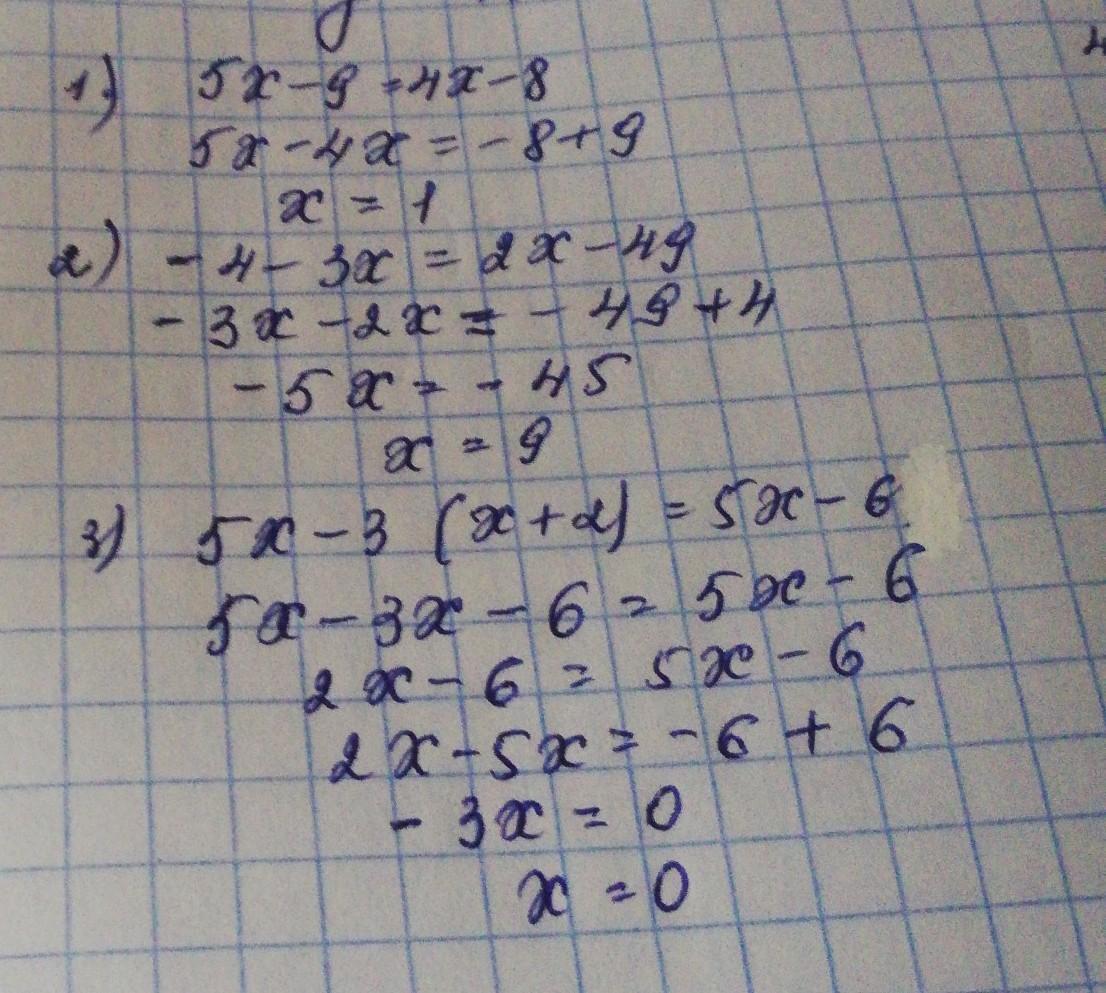 1) 5x-9=4x-8
5x-4x=-8+9
x=1
2) -4-3x=2x-49
-3x-2x=-49+4
-5x=-45
x=9
3) 5x-3(x+2)=5x-6
5x-3x-6=5x-6
2x-6=5x-6
2x-5x=-6+6
-3x=0
x=0